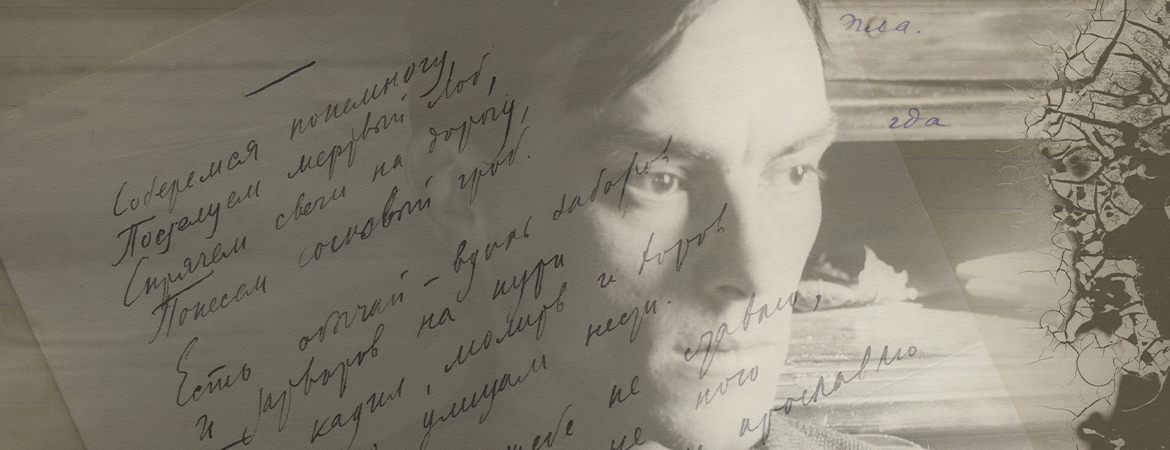 Соберемся понемногу,
Поцелуем мертвый лоб,
Спрячем свечи на дорогу,
Понесем сосновый гроб.
Есть обычай – вдоль заборов
И затворов на пути
кадил, молитв и хоров
улицам нести.
тебе не ставлю,
не пого
не прославлю
гда